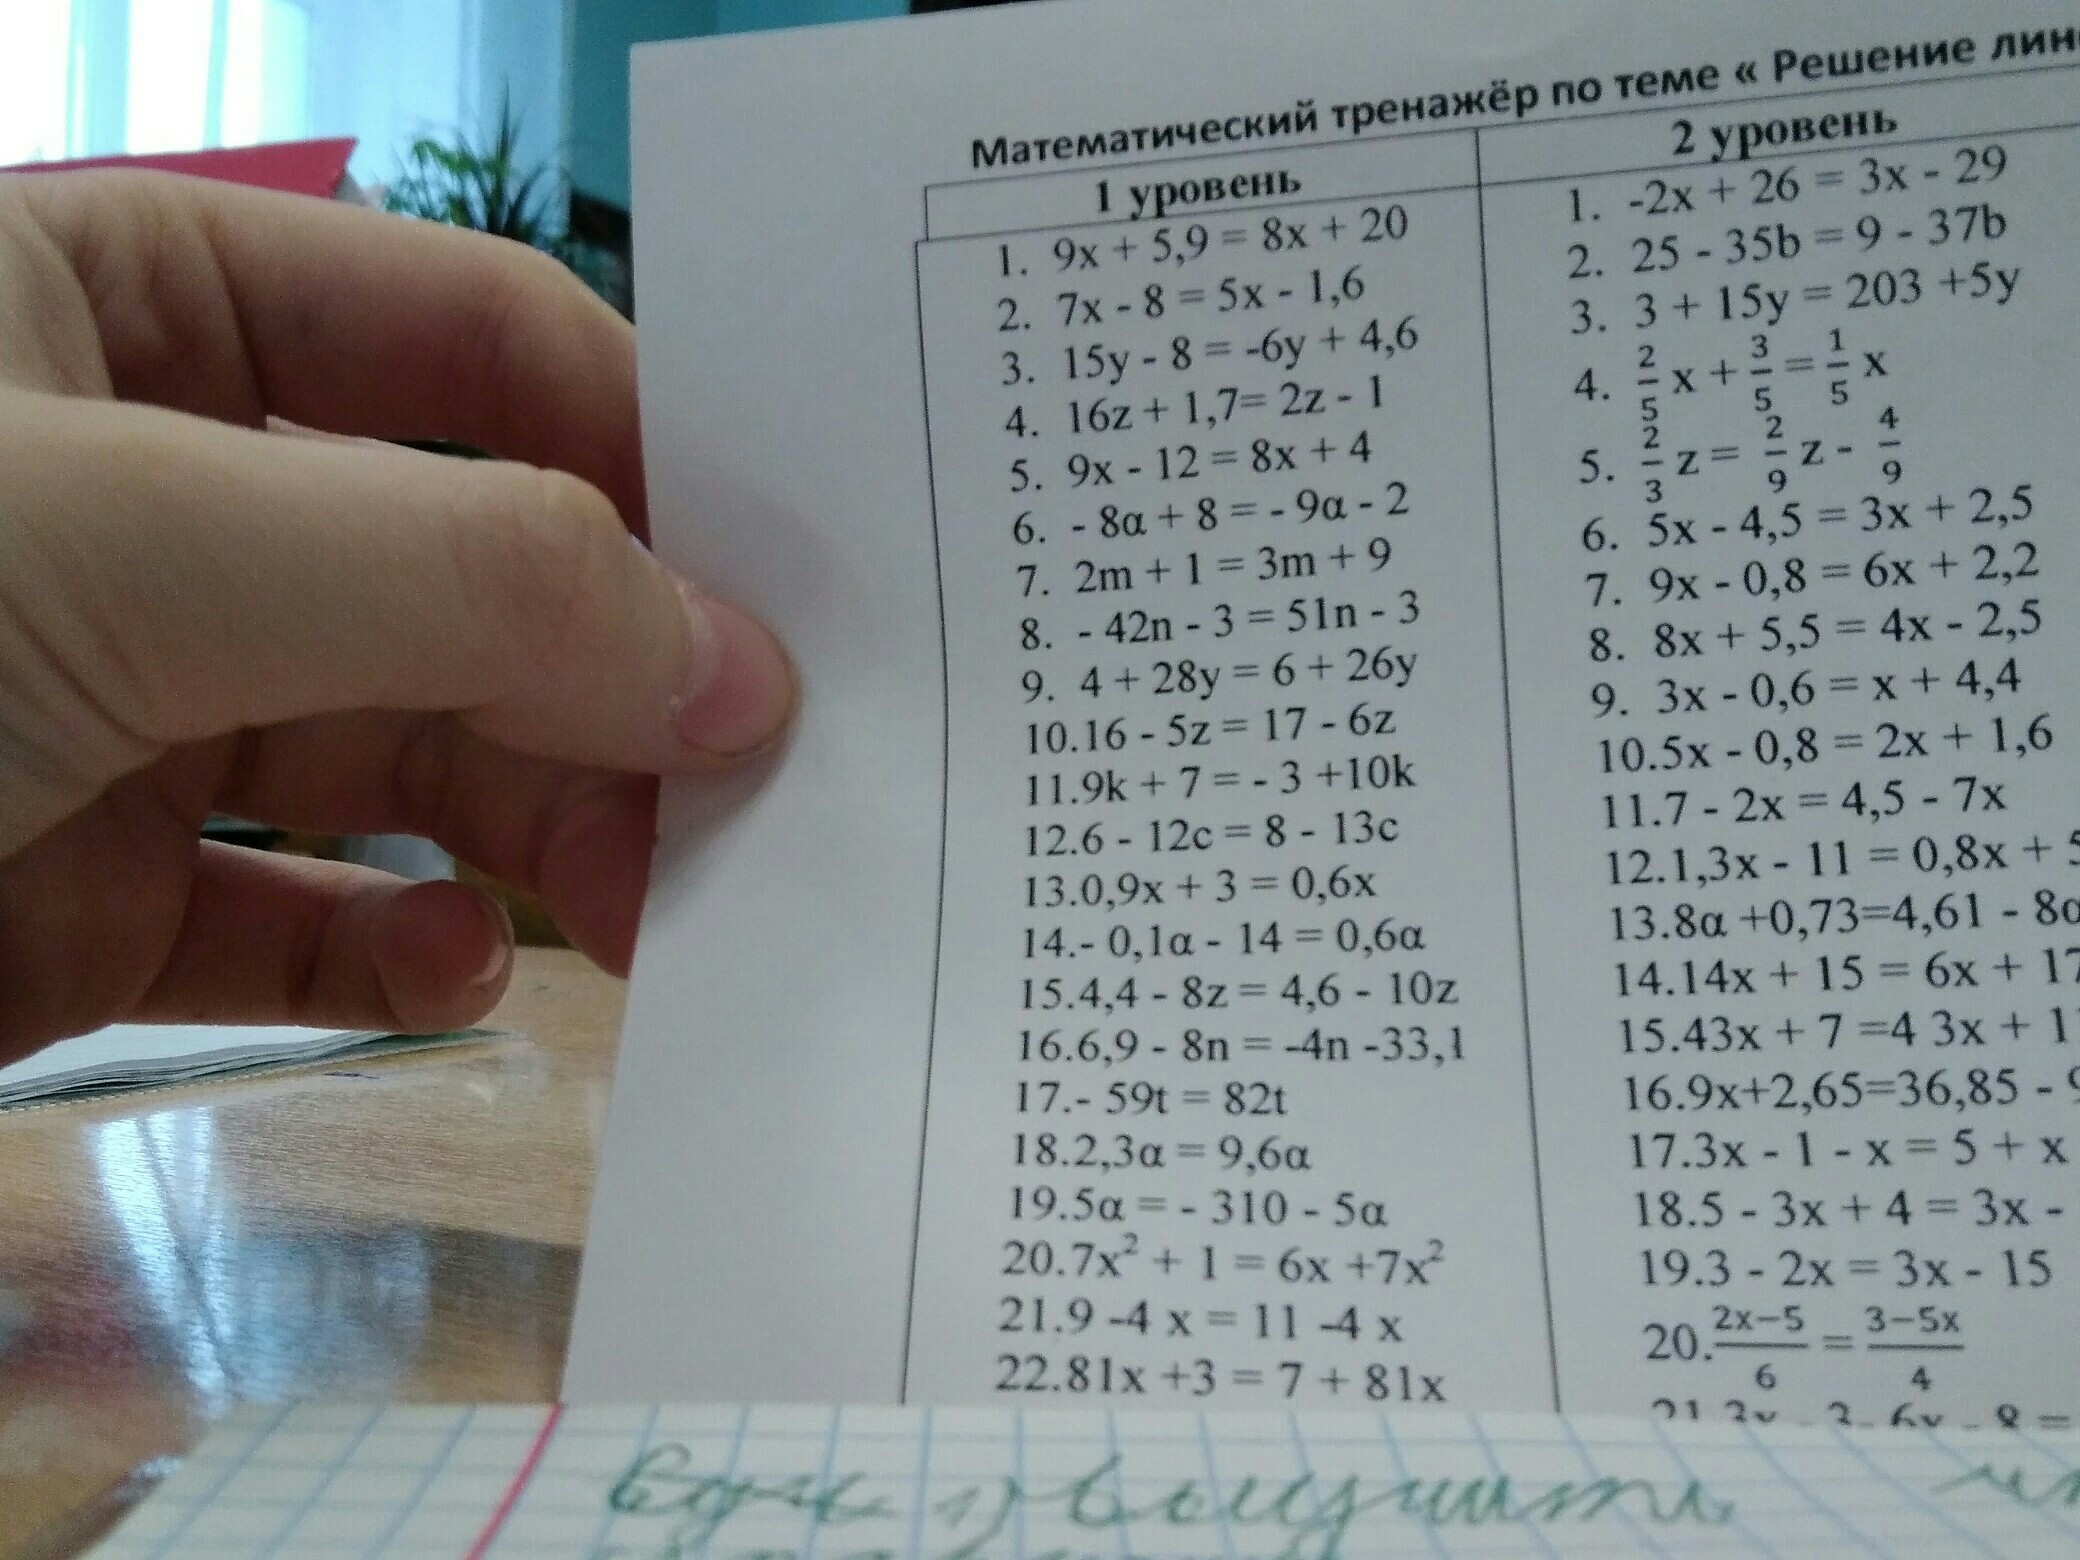 Математический тренажёр по теме « Решение
1 уровень
1. 9x + 5,9 = 8x + 20
2. 7x - 8 = 5x - 1,6
3. 15y - 8 = -6y + 4,6
4. 16z + 1,7= 2z - 1
5. 9x - 12 = 8x + 4
6. - 8α + 8 = - 9α - 2
7. 2m + 1 = 3m + 9
8. - 42n - 3 = 51n - 3
9. 4 + 28y = 6 + 26y
10.16 - 5z = 17 - 6z
11.9k + 7 = - 3 +10k
12.6 - 12c = 8 - 13c
13.0,9x + 3 = 0,6x
14.- 0,1α - 14 = 0,6α
15.4,4 - 8z = 4,6 - 10z
16.6,9 - 8n = -4n -33,1
17.- 59t = 82t
18.2,3α = 9,6α
19.5α = - 310 - 5α
20.7x² + 1 = 6x +7x²
21.9 -4 x = 11 -4 x
22.81x +3 = 7 + 81x
2 уровень
1. -2x + 26 = 3x - 29
2. 25 - 35b = 9 - 37b
3. 3 + 15y = 203 +5y
4. 2/5 x + 3/5 = 1/5 x
5. 2/3 z = 2/9 z - 4/9
6. 5x - 4,5 = 3x + 2,5
7. 9x - 0,8 = 6x + 2,2
8. 8x + 5,5 = 4x - 2,5
9. 3x - 0,6 = x + 4,4
10.5x - 0,8 = 2x + 1,6
11.7 - 2x = 4,5 - 7x
12.1,3x - 11 = 0,8x +
13.8α +0,73=4,61 - 8α
14.14x + 15 = 6x + 17
15.43x + 7 =4 3x + 1
16.9x+2,65=36,85 -
17.3x - 1 - x = 5 + x
18.5 - 3x + 4 = 3x -
19.3 - 2x = 3x - 15
20. 2x−5/6 = 3−5x/4